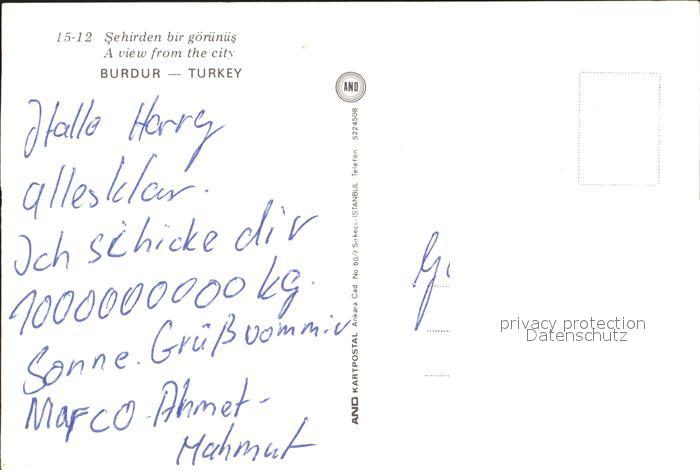 15-12 Şehirden bir görünüş
A view from the city
BURDUR — TURKEY
Hallo Harry
allesklar.
Ich schicke dir
1000000000 kg.
Sonne. Gruß vommir
Marco-Ahmet-
Mahmut
AND
AND KARTPOSTAL Ankara Cad. No 60/7 Sirkeci-İSTANBUL Telefon 5224508
privacy protection
Datenschutz